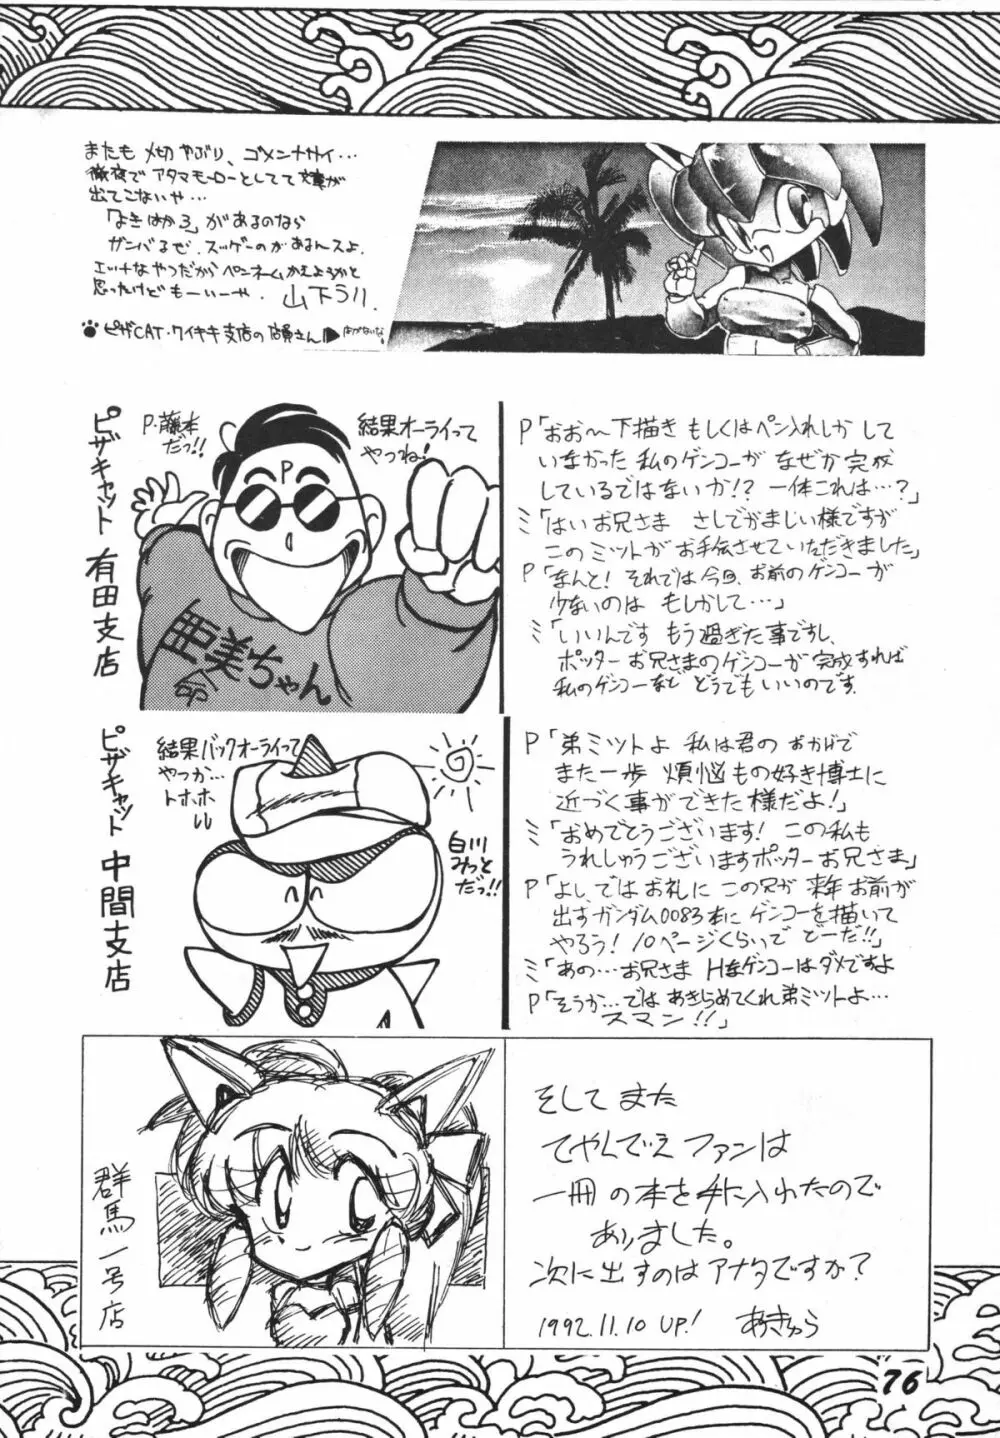 またも〆切やぶり、ゴメンナサイ…
徹夜でアタマモーローとしてて文章が
出てこないや…
「よきはかろ」があるのなら
ガンバるぜ、スッゲーのがあるんスよ、
エッチなやつだからペンネームかえよるかと
思ったけどもーいーや。山下うり
ピザCAT・ワイキキ支店の店員さん
ピザキャット有田支店
P・藤本
だっ!!
結果オーライって
やつね!
P
亜美ちゃん
命
P「おお〜下描きもしくはペン入れしかして
いなかった私のゲンコーがなぜか完成
しているではないか!?一体これは…?」
ミ「はいお兄さまさしでがましい様ですが
このミットがお手伝させていただきました」
P「なんと!それでは今回、お前のゲンコーが
少ないのはもしかして…」
ミ「いいんですもう過ぎた事ですし、
ポッターお兄さまのゲンコーが完成すれば
私のゲンコーなどどうでもいいのです。
ピザキャット中間支店
結果バックオーライって
やつか…
トホホ
白川
みっと
だっ!!
P「弟ミットよ私は君のおかげで
また一歩煩悩もの好き博士に
近づく事ができた様だよ!」
ミ「おめでとうございます!この私も
うれしゅうございますポッターお兄さま」
P「よしではお礼にこの兄が来年お前が
出すガンダム0083本にゲンコーを描いて
やろう!10ページくらいでどーだ!!」
ミ「あの…お兄さまHなゲンコーはダメですよ
P「そうか…ではあきらめてくれ弟ミットよ…
スマン!!」
群馬一号店
そしてまた
てやんでぃえファンは
一冊の本を手に入れたので
ありました。
次に出すのはアナタですか?
1992.11.10 UP! あきゅら
76